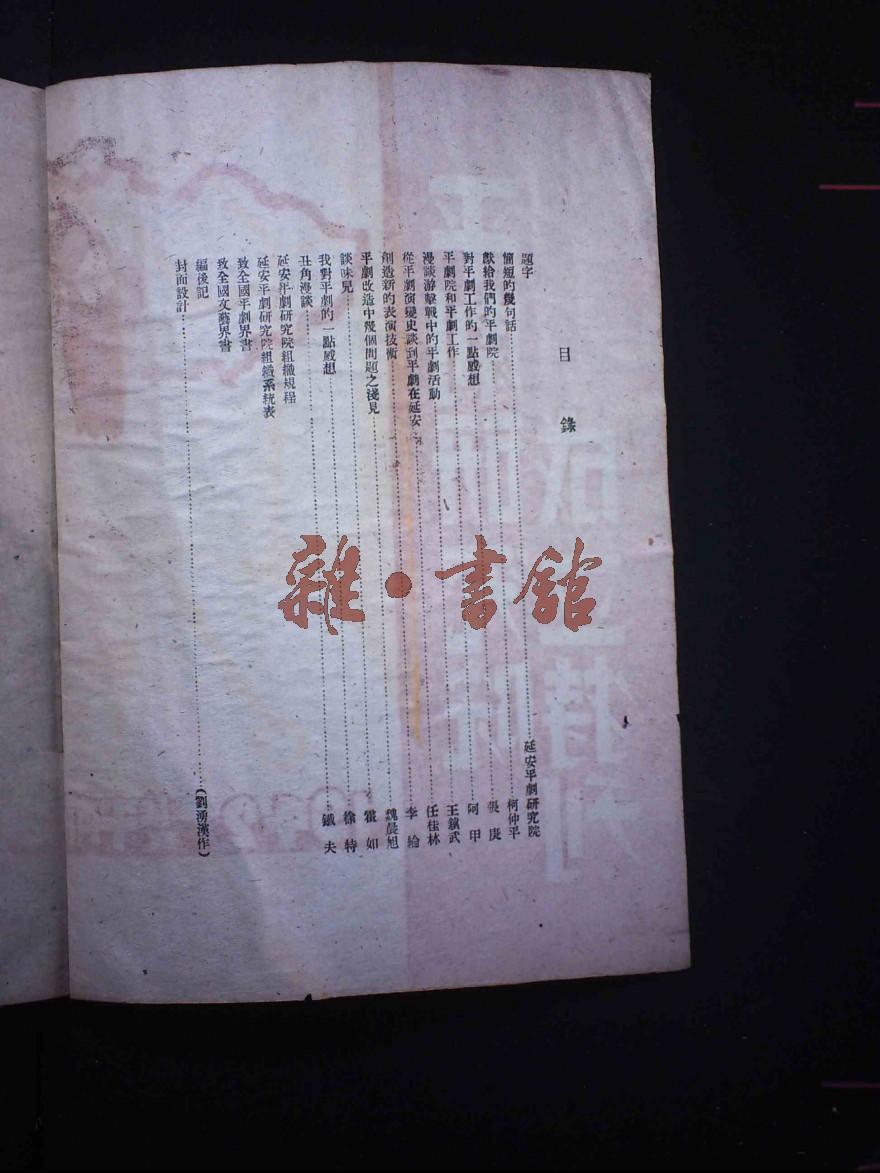 目錄
題字
簡短的幾句話……延安平劇研究院
獻給我們的平劇院……柯仲平
對平劇工作的一點感想……張庚
平劇院和平劇工作……阿甲
漫談游擊戰中的平劇活動……王鎮武
從平劇演變史談到平劇在延安……任桂林
創造新的表演技術……李綸
平劇改造中幾個問題之淺見……魏晨旭
談味兒……如
我對平劇的一點感想……徐特
丑角漫談……鐵夫
延安平劇研究院組織規程
延安平劇研究院組織系統表
致全國平劇界書
致全國文藝界書
編後記
封面設計……(劉湧漢作)
雜·書館